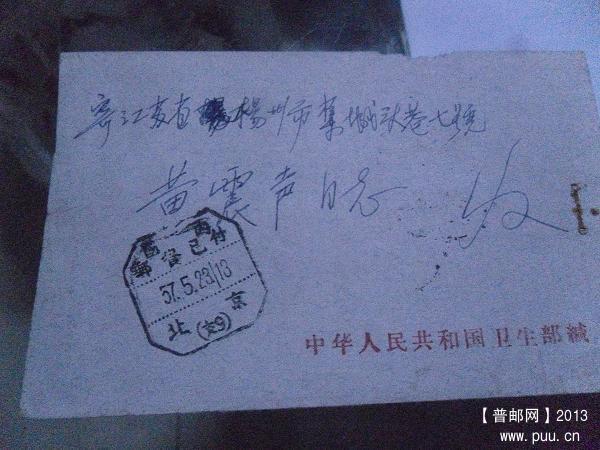 寄江苏省楊州市舊城头巷七號
黄震声同志 收
國內
郵資已付
57.5.23 13
北(支9)京
中华人民共和国卫生部缄
【普邮网】2013
www.puu.cn